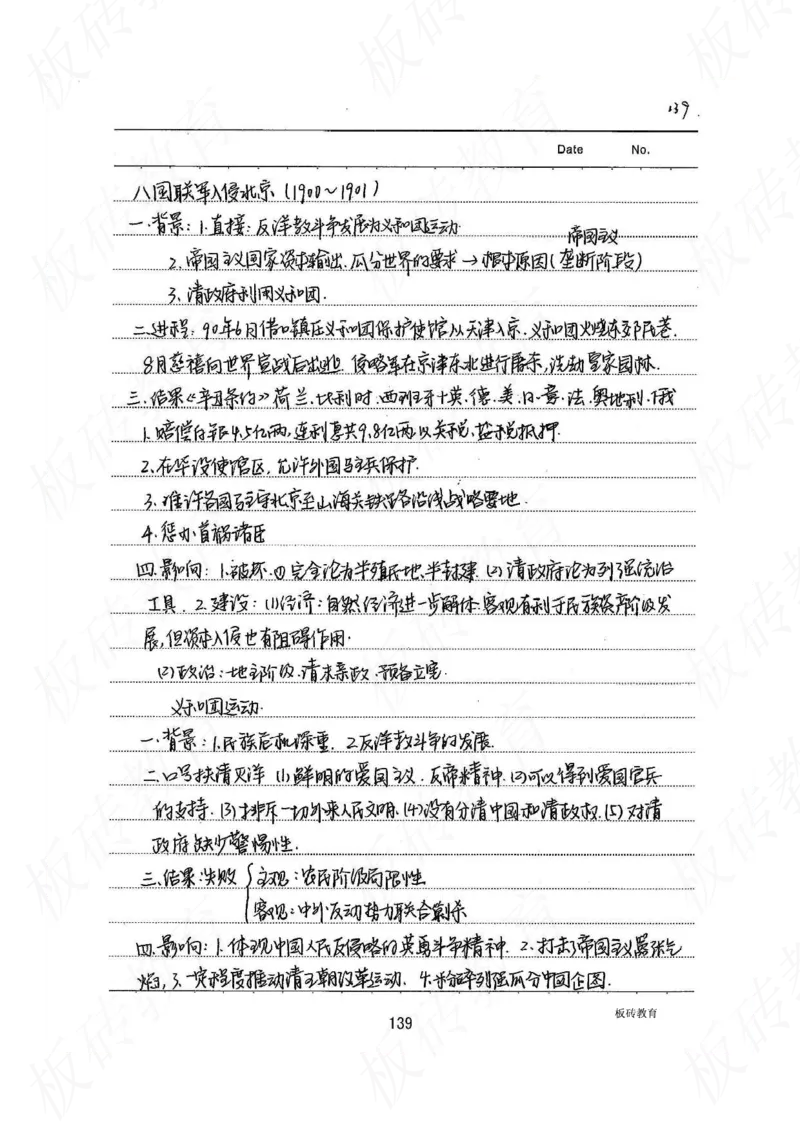 139.
Date No.
八国联军入侵北京(1900~1901)
一.背景:1.直接:反洋教斗争发展为义和团运动.
帝国主义
2.帝国主义国家资本输出.瓜分世界的要求→根本原因(垄断阶段)
3.清政府利用义和团.
二.进程:90年6月借口镇压义和团保护使馆从天津入京.义和团火烧东郊民巷.
8月慈禧向世界宣战后出逃.侵略军在京津东北进行屠杀,洗劫皇家园林.
三.结果《辛丑条约》荷兰、比利时.西班牙+英、德、美、日.意、法、奥地利.俄
1.赔偿白银4.5亿两,连利息共9.8亿两以关税、盐税抵押.
2.在华设使馆区,允许外国驻兵保护.
3.准许各国驻守北京至山海关铁路沿线战略要地.
4.惩办首祸诸臣
四.影响:1.破坏.①完全沦为半殖民地、半封建.(2)清政府沦为列强统治
工具.2.建设:(1)经济:自然经济进一步解体.客观有利于民族资产阶级发
展,但资本入侵也有阻碍作用.
(2)政治:地主阶级.清末亲政.预备立宪.
义和团运动.
一.背景:1.民族危机深重.2.反洋教斗争的发展.
二.口号扶清灭洋(1)鲜明的爱国主义.反帝精神.(2)可以得到爱国官兵
的支持.(3)排斥一切外来人民文明.(4)没有分清中国和清政权.(5)对清
政府缺少警惕性.
三.结果:失败{主观:农民阶级局限性
客观:中外反动势力联合剿杀
四.影响:1.体现中国人民反侵略的英勇斗争精神.2.打击了帝国主义嚣张气
焰,3.一定程度推动清王朝改革运动.4.粉碎列强瓜分中国企图.
板砖教育
139